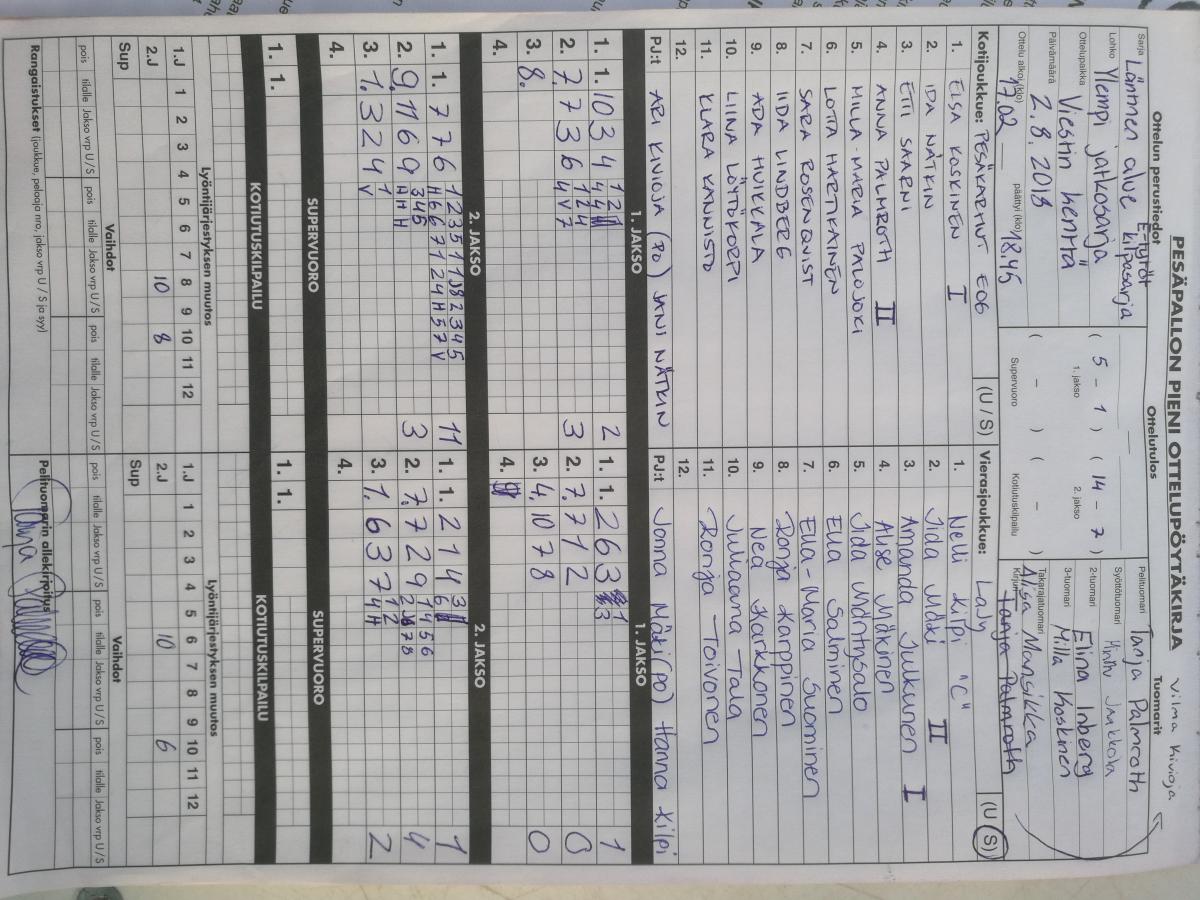 PESÄPALLON PIENI OTTELUPÖYTÄKIRJA
Vilma Kivioja
Ottelun perustiedot
Ottelutulos
Tuomarit
Sarja Lännen alue E-tytöt kilpasarja
Lohko Ylempi jatkosarja
Ottelupaikka Viestin kenttä
Päivämäärä 2.8.2018
Ottelu alkoi (klo) 17.02 päättyi (klo) 18.45
( 5 - 1 ) ( 14 - 7 )
1. jakso 2. jakso
( - ) ( - )
Supervuoro Kotiutuskilpailu
Pelituomari Tanja Palmroth
Syöttötuomari
2-tuomari Elina Inberg
3-tuomari Milla Koskinen
Takarajatuomari Alisa Mansikka
Kirjuri Tanja Palmroth
Kotijoukkue: PESÄKARHUT E06 (U / S)
1. ELSA KOSKINEN I
2. IDA NÄTKIN
3. ETTI SAARNI
4. ANNA PALMROTH II
5. MILLA-MARIA PALOJOKI
6. LOTTA HARTIKAINEN
7. SARA ROSENQVIST
8. IIDA LINDBERG
9. ADA HUIKKALA
10. LIINA LÖYTÖKORPI
11. KLARA KANNISTO
12.
PJ:t ARI KIVIOJA (PO) JANI NÄTKIN
Vierasjoukkue: Laly (U / S)
1. Nelli Kilpi "C"
2. Iida Mäki II
3. Amanda Julkunen I
4. Alise Mäkinen
5. Iida Mäntysalo
6. Eila Salminen
7. Ella-Maria Suominen
8. Ronja Karppinen
9. Nea Harkkonen
10. Juliaana Tala
11. Ronja Toivonen
12.
PJ:t Jonna Mäki (po) Hanna Kilpi
1. JAKSO
1. JAKSO
1. 1. 10 3 4
2
2. 7. 7 3 6
3
3. 8.
4.
1. 1. 2 6 3
1
2. 7. 7 1 2
0
3. 4. 10 7 8
0
4.
2. JAKSO
2. JAKSO
1. 1. 7 7 6
11
2. 9. 11 6 9
3
3. 1. 3 2 4
4.
1. 1. 2 1 4
1
2. 7. 7 2 9
4
3. 1. 6 3 7
2
4.
SUPERVUORO
SUPERVUORO
1. 1.
1. 1.
KOTIUTUSKILPAILU
KOTIUTUSKILPAILU
Lyöntijärjestyksen muutos
Lyöntijärjestyksen muutos
1.J 1 2 3 4 5 6 7 8 9 10 11 12
2.J 10 8
Sup
1.J 1 2 3 4 5 6 7 8 9 10 11 12
2.J 10 6
Sup
Vaihdot
Vaihdot
pois tilalle Jakso vrp U/S pois tilalle Jakso vrp U/S pois tilalle Jakso vrp U/S
pois tilalle Jakso vrp U/S pois tilalle Jakso vrp U/S pois tilalle Jakso vrp U/S
Rangaistukset (joukkue, pelaaja nro, jakso vrp U / S ja syy)
Pelituomarin allekirjoitus